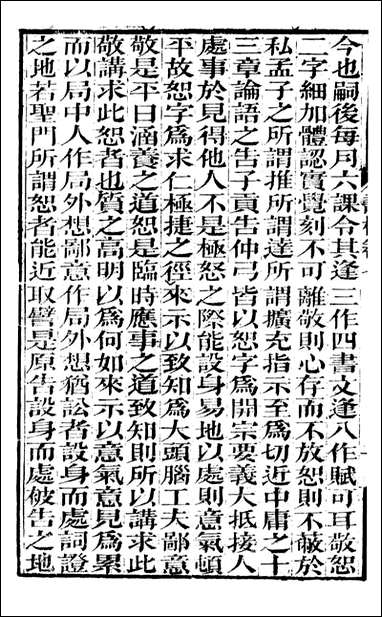 今也嗣後每月六課令其逢三作四書文逢八作賦可耳敬恕
二字細加體認實覺刻不可離敬則心存而不放恕則不蔽於
私孟子之所謂推所謂達所謂擴充指示至爲切近中庸之十
三章論語之告子貢告仲弓皆以恕字爲開宗要義大抵接人
處事於見得他人不是極怒之際能設身易地以處則意氣頓
平故恕字爲求仁極捷之徑來示以致知爲大頭腦工夫鄙意
敬是平日涵養之道恕是臨時應事之道致知則所以講求此
敬講求此恕者也質之高明以爲何如來示以意氣意見爲累
而以局中人作局外想鄙意作局外想猶訟者設身而處詞證
之地若聖門所謂恕者能近取譬是原告設身而處被告之地